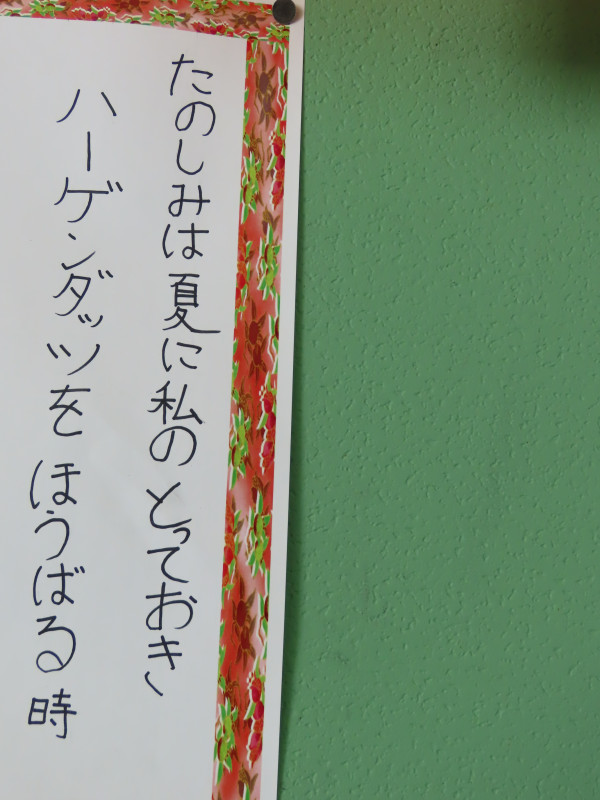 たのしみは夏に私のとっておき、
ハーゲンダッツをほうばる時